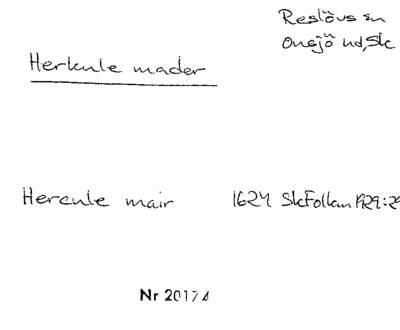 Reslövs sn
Onsjö hd, Sk
Herkule mader
Hercule mair 1624 SkFolkm 1929:29
Nr 20174